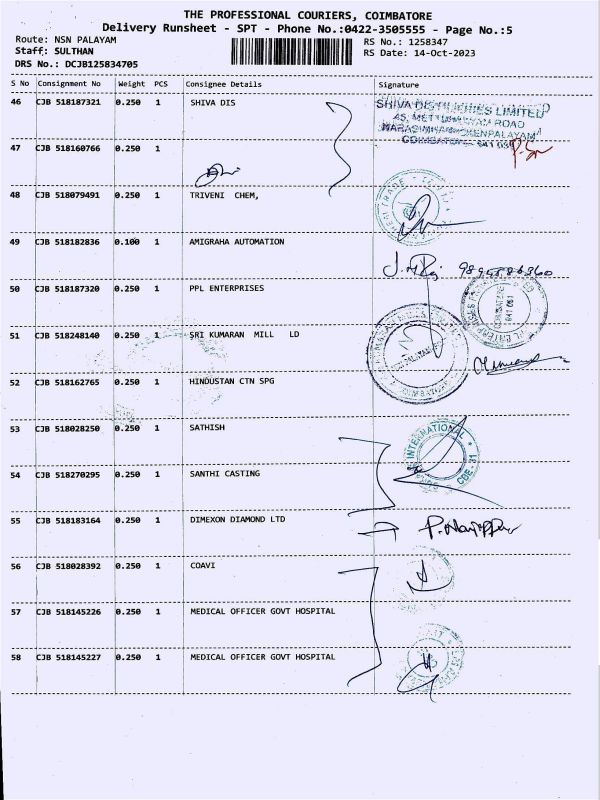 THE PROFESSIONAL COURIERS, COIMBATORE
Delivery Runsheet - SPT - Phone No.:0422-3505555 - Page No.:5
Route: NSN PALAYAM
RS No.: 1258347
Staff: SULTHAN
RS Date: 14-Oct-2023
DRS No.: DCJB125834705
S No Consignment No Weight PCS Consignee Details Signature
46 CJB 518187321 0.250 1 SHIVA DIS
SHIVA DISTILLERIES LIMITED
45, METTUPALAYAM ROAD
47 CJB 518160766 0.250 1
48 CJB 518079491 0.250 1 TRIVENI CHEM,
49 CJB 518182836 0.100 1 AMIGRAHA AUTOMATION
50 CJB 518187320 0.250 1 PPL ENTERPRISES
51 CJB 518248140 0.250 1 SRI KUMARAN MILL LD
52 CJB 518162765 0.250 1 HINDUSTAN CTN SPG
53 CJB 518028250 0.250 1 SATHISH
INTERNATIONAL
CBE-31
54 CJB 518270295 0.250 1 SANTHI CASTING
55 CJB 518183164 0.250 1 DIMEXON DIAMOND LTD
56 CJB 518028392 0.250 1 COAVI
57 CJB 518145226 0.250 1 MEDICAL OFFICER GOVT HOSPITAL
58 CJB 518145227 0.250 1 MEDICAL OFFICER GOVT HOSPITAL